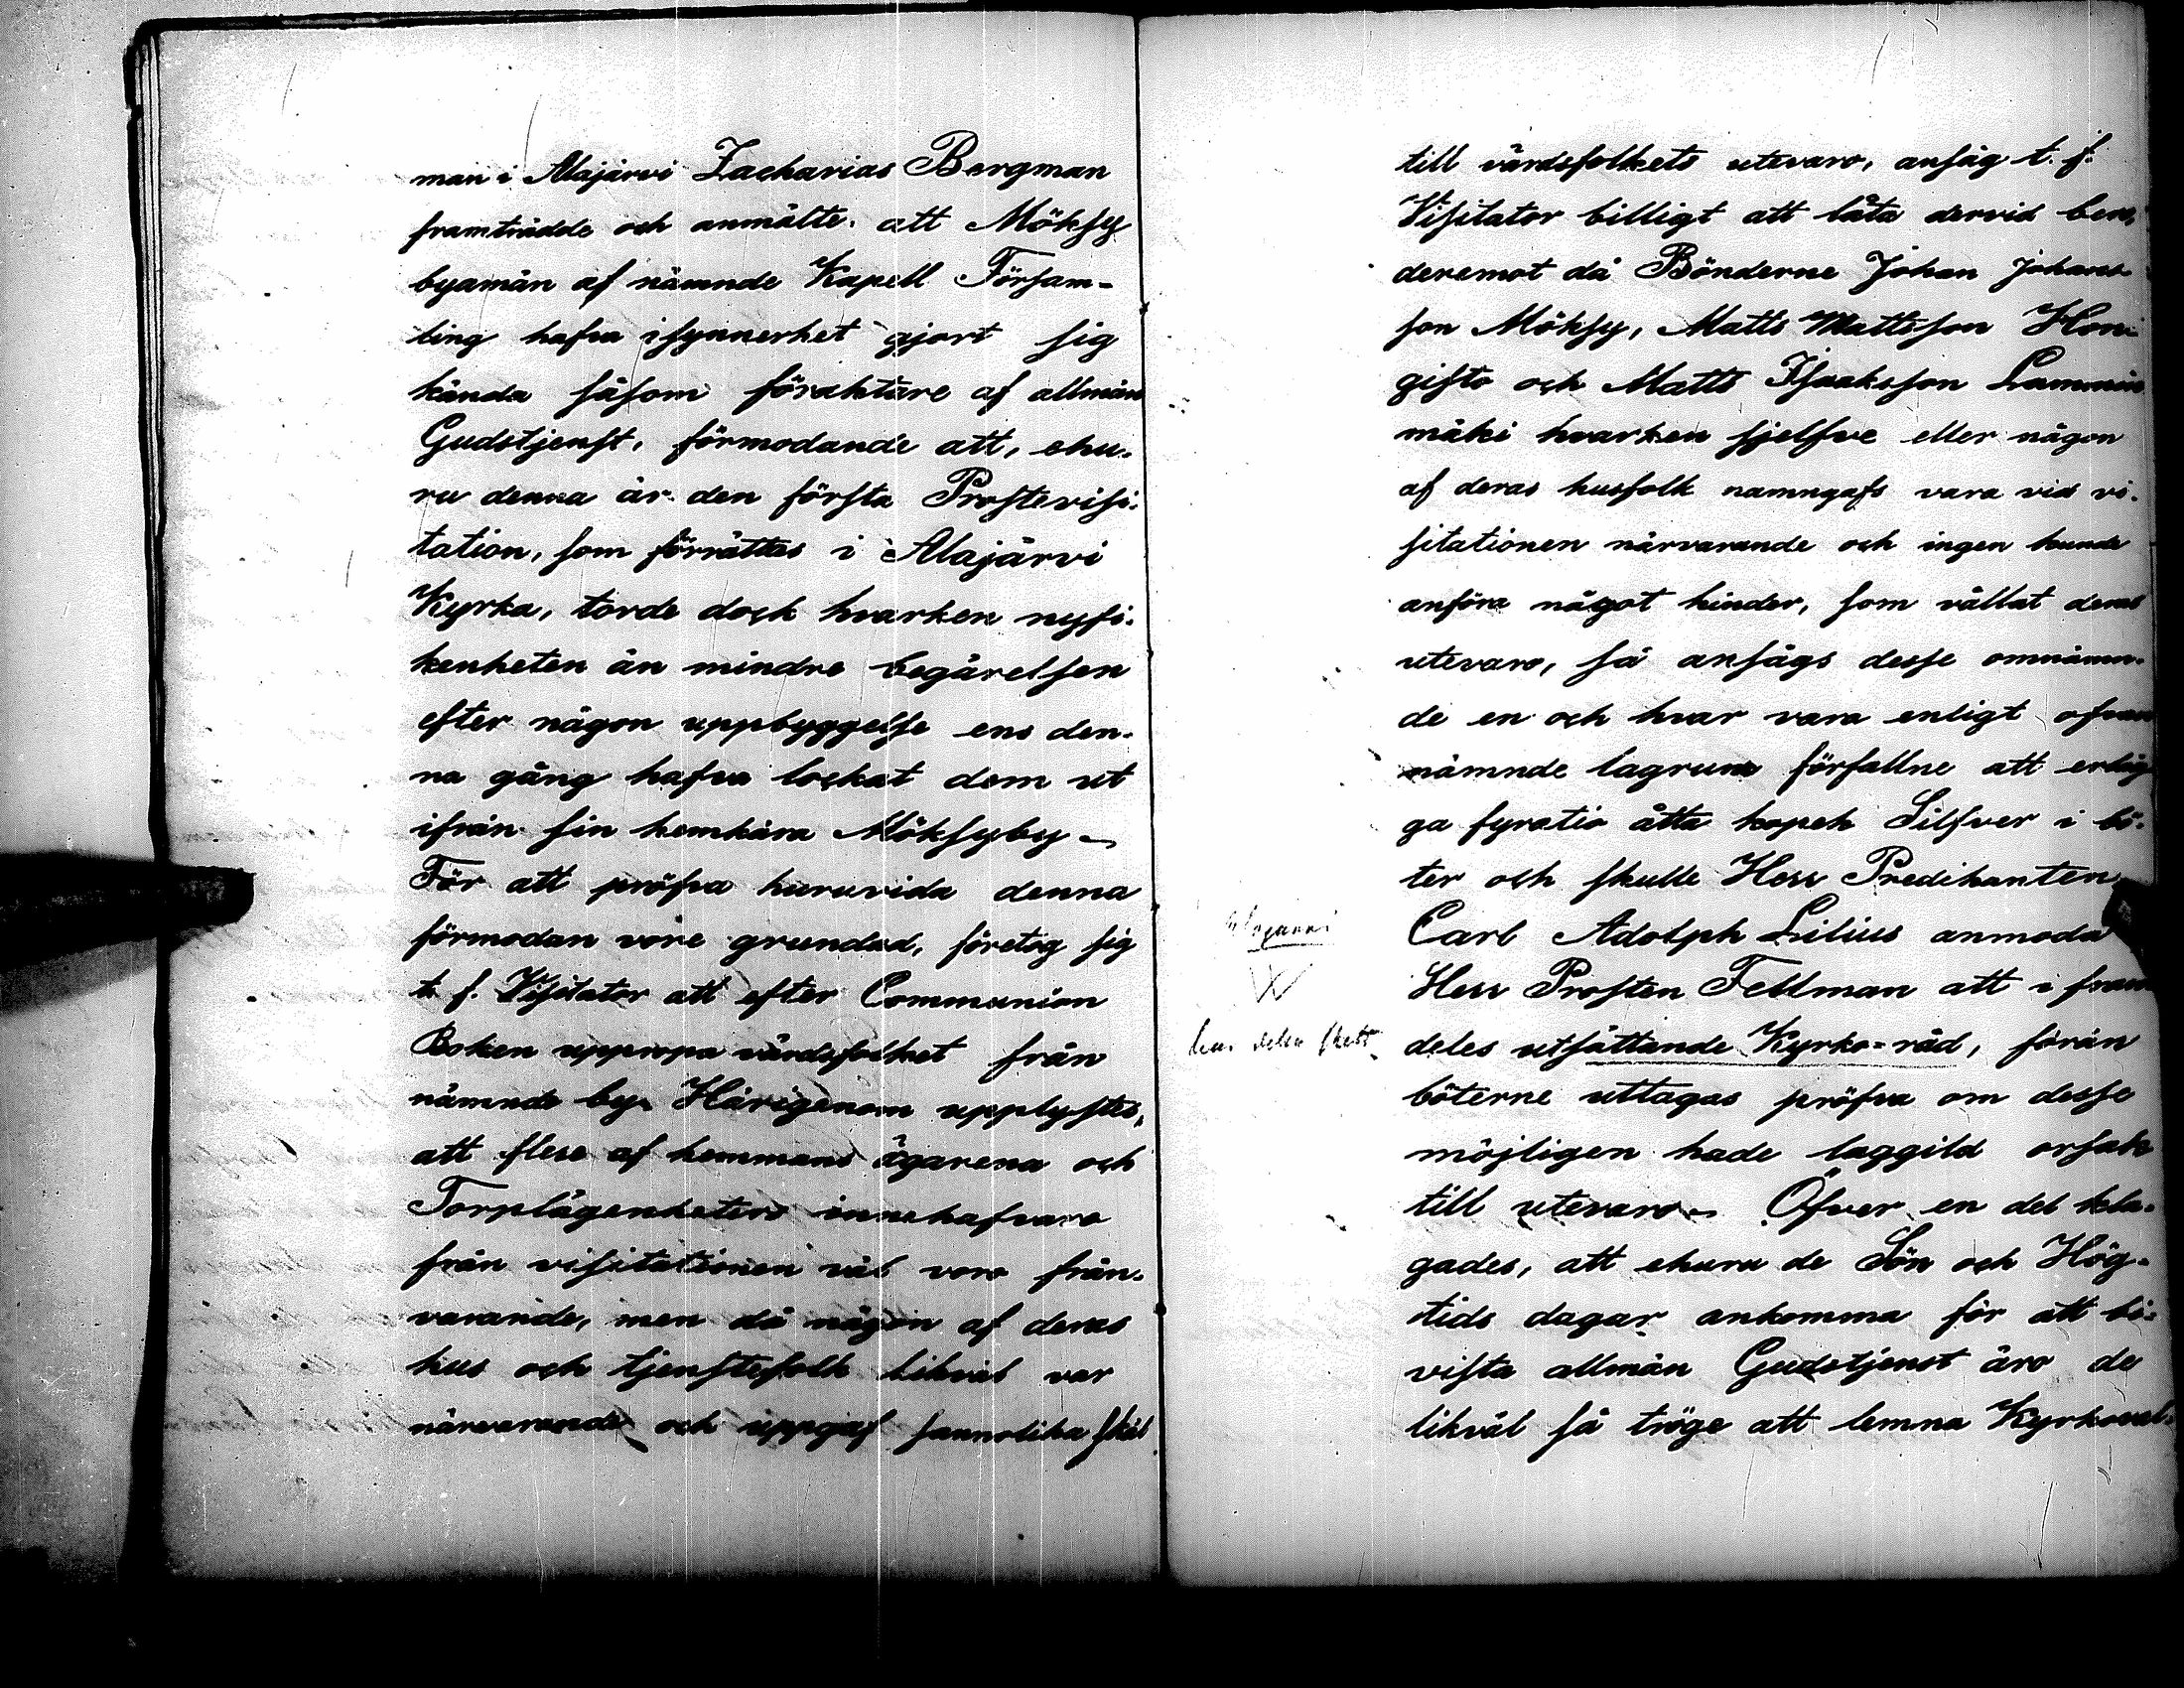 man i Alajärvi Zacharias Bergman
framträdde och anmälte att Möksy
byamän af nämnde Kapell Försam-
ling hafva isynnerhet gjort sig
kända såsom föraktare af allmän
Gudstjenst, förmodande att, ehu-
ru denna är den första Prostevisi-
tation, som förrättas i Alajärvi
Kyrka, torde dock hvarken nyfi-
kenheten än mindre begärelsen
efter någon uppbyggelse ens den-
na gång hafva lockat dem ut
ifrån sin hemkära Möksyby –
För att pröfva huruvida denna
förmodan vore grundad, företog sig
t. f. Visitator att efter Communion
Boken uppropa värdsfolket från
nämnde by. Härigenom upplystes,
att flere af hemmans ägarena och
Torplägenheters innehafvare
från visitationen väl voro från-
varande, men då någon af deras
hus och tjenstefolk likväl var
närvarande och uppgaf sannolika skäl
till värdsfolkets utevaro, ansåg t. f.
Visitator billigt att låta dervid bero,
deremot då Bönderne Johan Johans-
son Möksy, Matts Mattsson Hon-
gisto och Matts Isaksson Lammin
mäki hvarken sjelfve eller någon
af deras husfolk namngafs vara vid vi-
sitationen närvarande och ingen kunde
anföra något hinder, som vållat deras
utevaro, så ansågs desse omnämn-
de en och hvar vara enligt ofvan
nämnde lagrum förfallne att erläg
ga fyratio åtta kopek Silfver i bö-
ter och skulle Herr Predikanten
Carl Adolph Lilius anmoda
Herr Prosten Fellman att i fram
deles utsättande Kyrko-råd, förän
böterne uttagas pröfva om desse
möjligen hade laggild orsak
till utevaro – Öfver en del kla-
gades, att ehuru de Sön och Hög-
tids dagar ankomma för att bi-
vista allmän Gudstjenst äro de
likväl så tröge att lemna Kyrkovall-
Alajärvi
skett